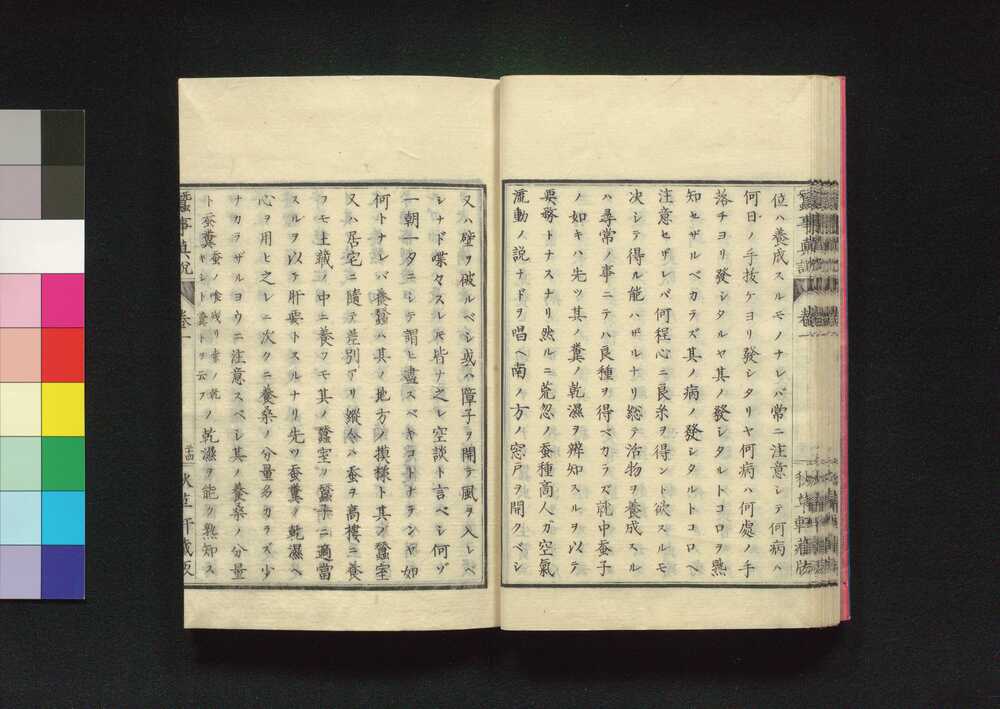 位ハ養成スルモノナレバ常ニ注意シテ何病ハ
何日ノ手抜ケヨリ發シタリヤ何病ハ何處ノ手
落チヨリ發シタルヤ其ノ發シタルトコロヲ熟
知セザルベカラズ其ノ病ノ發シタルトコロヘ
注意セザレバ何程心ニ良糸ヲ得ント欲スルモ
决シテ得ル能ハザルナリ総テ活物ヲ養成スル
ハ尋常ノ事ニテハ良種ヲ得ベカラズ就中蚕子
ノ如キハ先ツ其ノ糞ノ乾濕ヲ辨知スルヲ以テ
要務トナスナリ然ルニ荒忽ノ蚕種高人ガ空氣
流動ノ説ナドヲ唱ヘ南ノ方ノ窓戸ヲ開クベシ
又ハ壁ヲ破ルベシ或ハ障子ヲ開テ風ヲ入レベ
シナド喋々スレ𪜈皆ナ之レ空談ト言ベシ何ゾ
一朝一夕ニシテ謂ヒ盡スベキコトナランヤ如
何トナレバ養蠶ハ其ノ地方ノ摸様ト其ノ蠶室
又ハ居宅ニ隨テ差別アリ縱令ハ蚕ヲ高樓ニ養
フモ土藏ノ中ニ養フモ其ノ蠶室ノ蠶子ニ適當
スルヲ以テ肝要トスルナリ先ツ蚕糞ノ乾濕ヘ
心ヲ用ヒ之レニ次クニ養桑ノ分量多カラズ少
ナカラザルヨウニ注意スベシ其ノ養桑ノ分量
ト蚕糞蚕ノ喰残リ桑ノ乾キシト糞トヲ云フノ乾濕ヲ能ク熟知ス
蠶事真説
卷一
秋草軒藏版